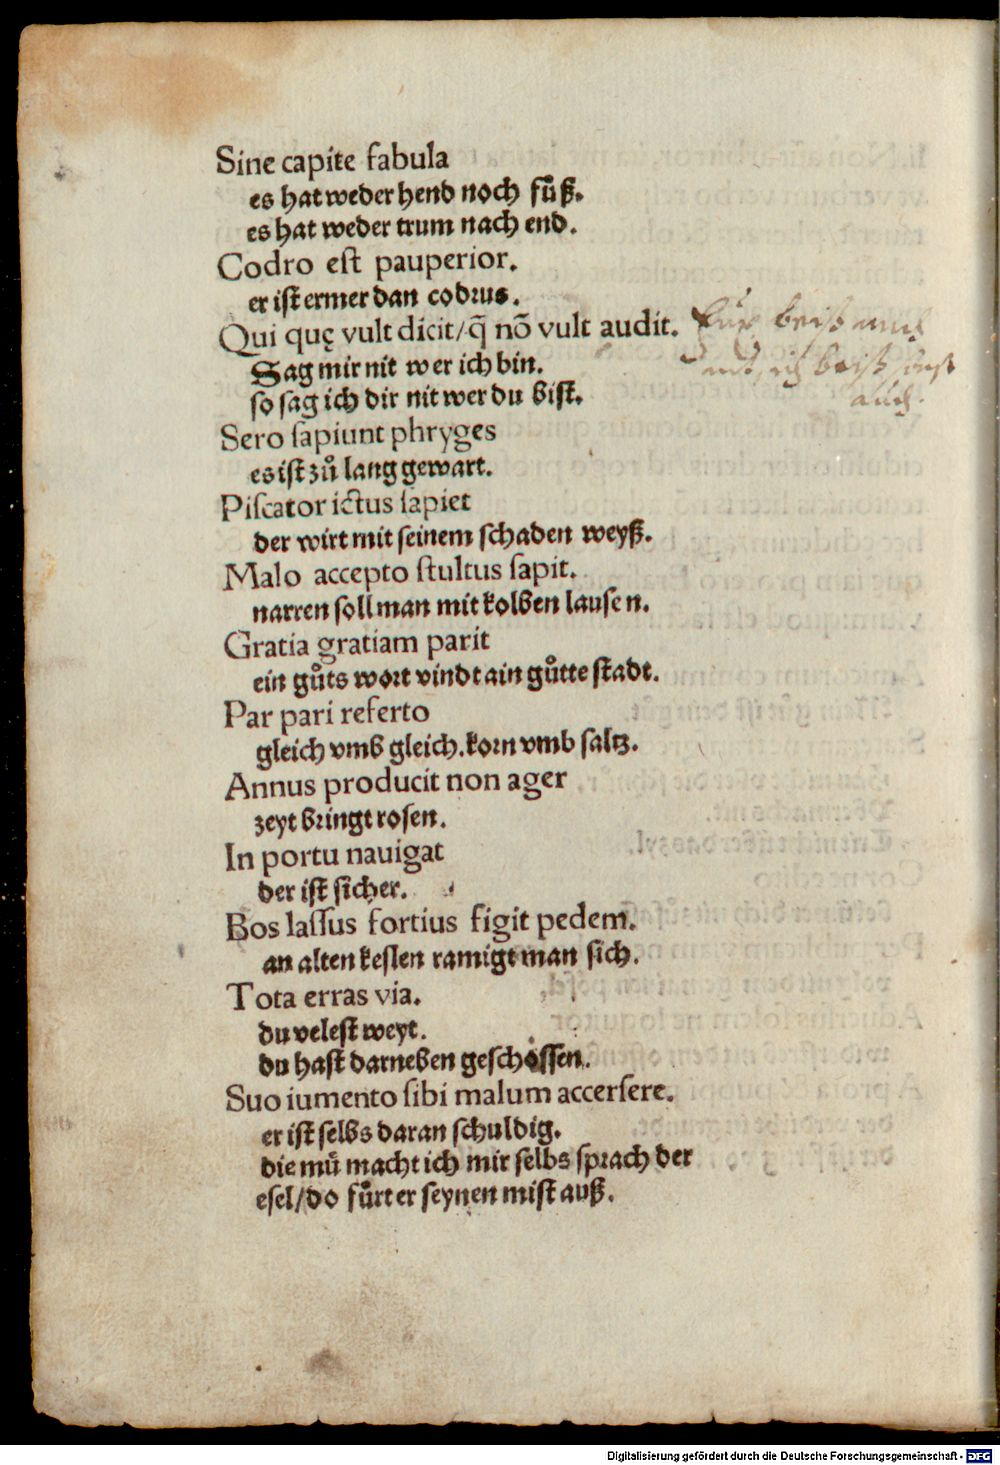 Sine capite fabula
es hat weder hend noch fuͤß.
es hat weder trum nach end.
Codro est pauperior.
er ist ermer dan codrus.
Qui quę vult dicit/q̃ nõ vult audit.
beiß
Sag mir nit wer ich bin.
ich beiß
so sag ich dir nit wer du bist.
auch.
Sero sapiunt phryges
es ist zuͦ lang gewart.
Piscator ictus sapiet
der wirt mit seinem schaden weyß.
Malo accepto stultus sapit.
narren soll man mit kolben lausen.
Gratia gratiam parit
ein guͦts wort vindt ain guͦtte stadt.
Par pari referto
gleich vmb gleich.korn vmb saltz.
Annus producit non ager
zeyt bringt rosen.
In portu nauigat
der ist sicher.
Bos lassus fortius figit pedem.
an alten keslen ramigt man sich.
Tota erras via.
du velest weyt.
du hast darneben geschossen.
Suo iumento sibi malum accersere.
er ist selbs daran schuldig.
die muͤ macht ich mir selbs sprach der
esel/do fuͤrt er seynen mist auß.
Digitalisierung gefördert durch die Deutsche Forschungsgemeinschaft - DFG